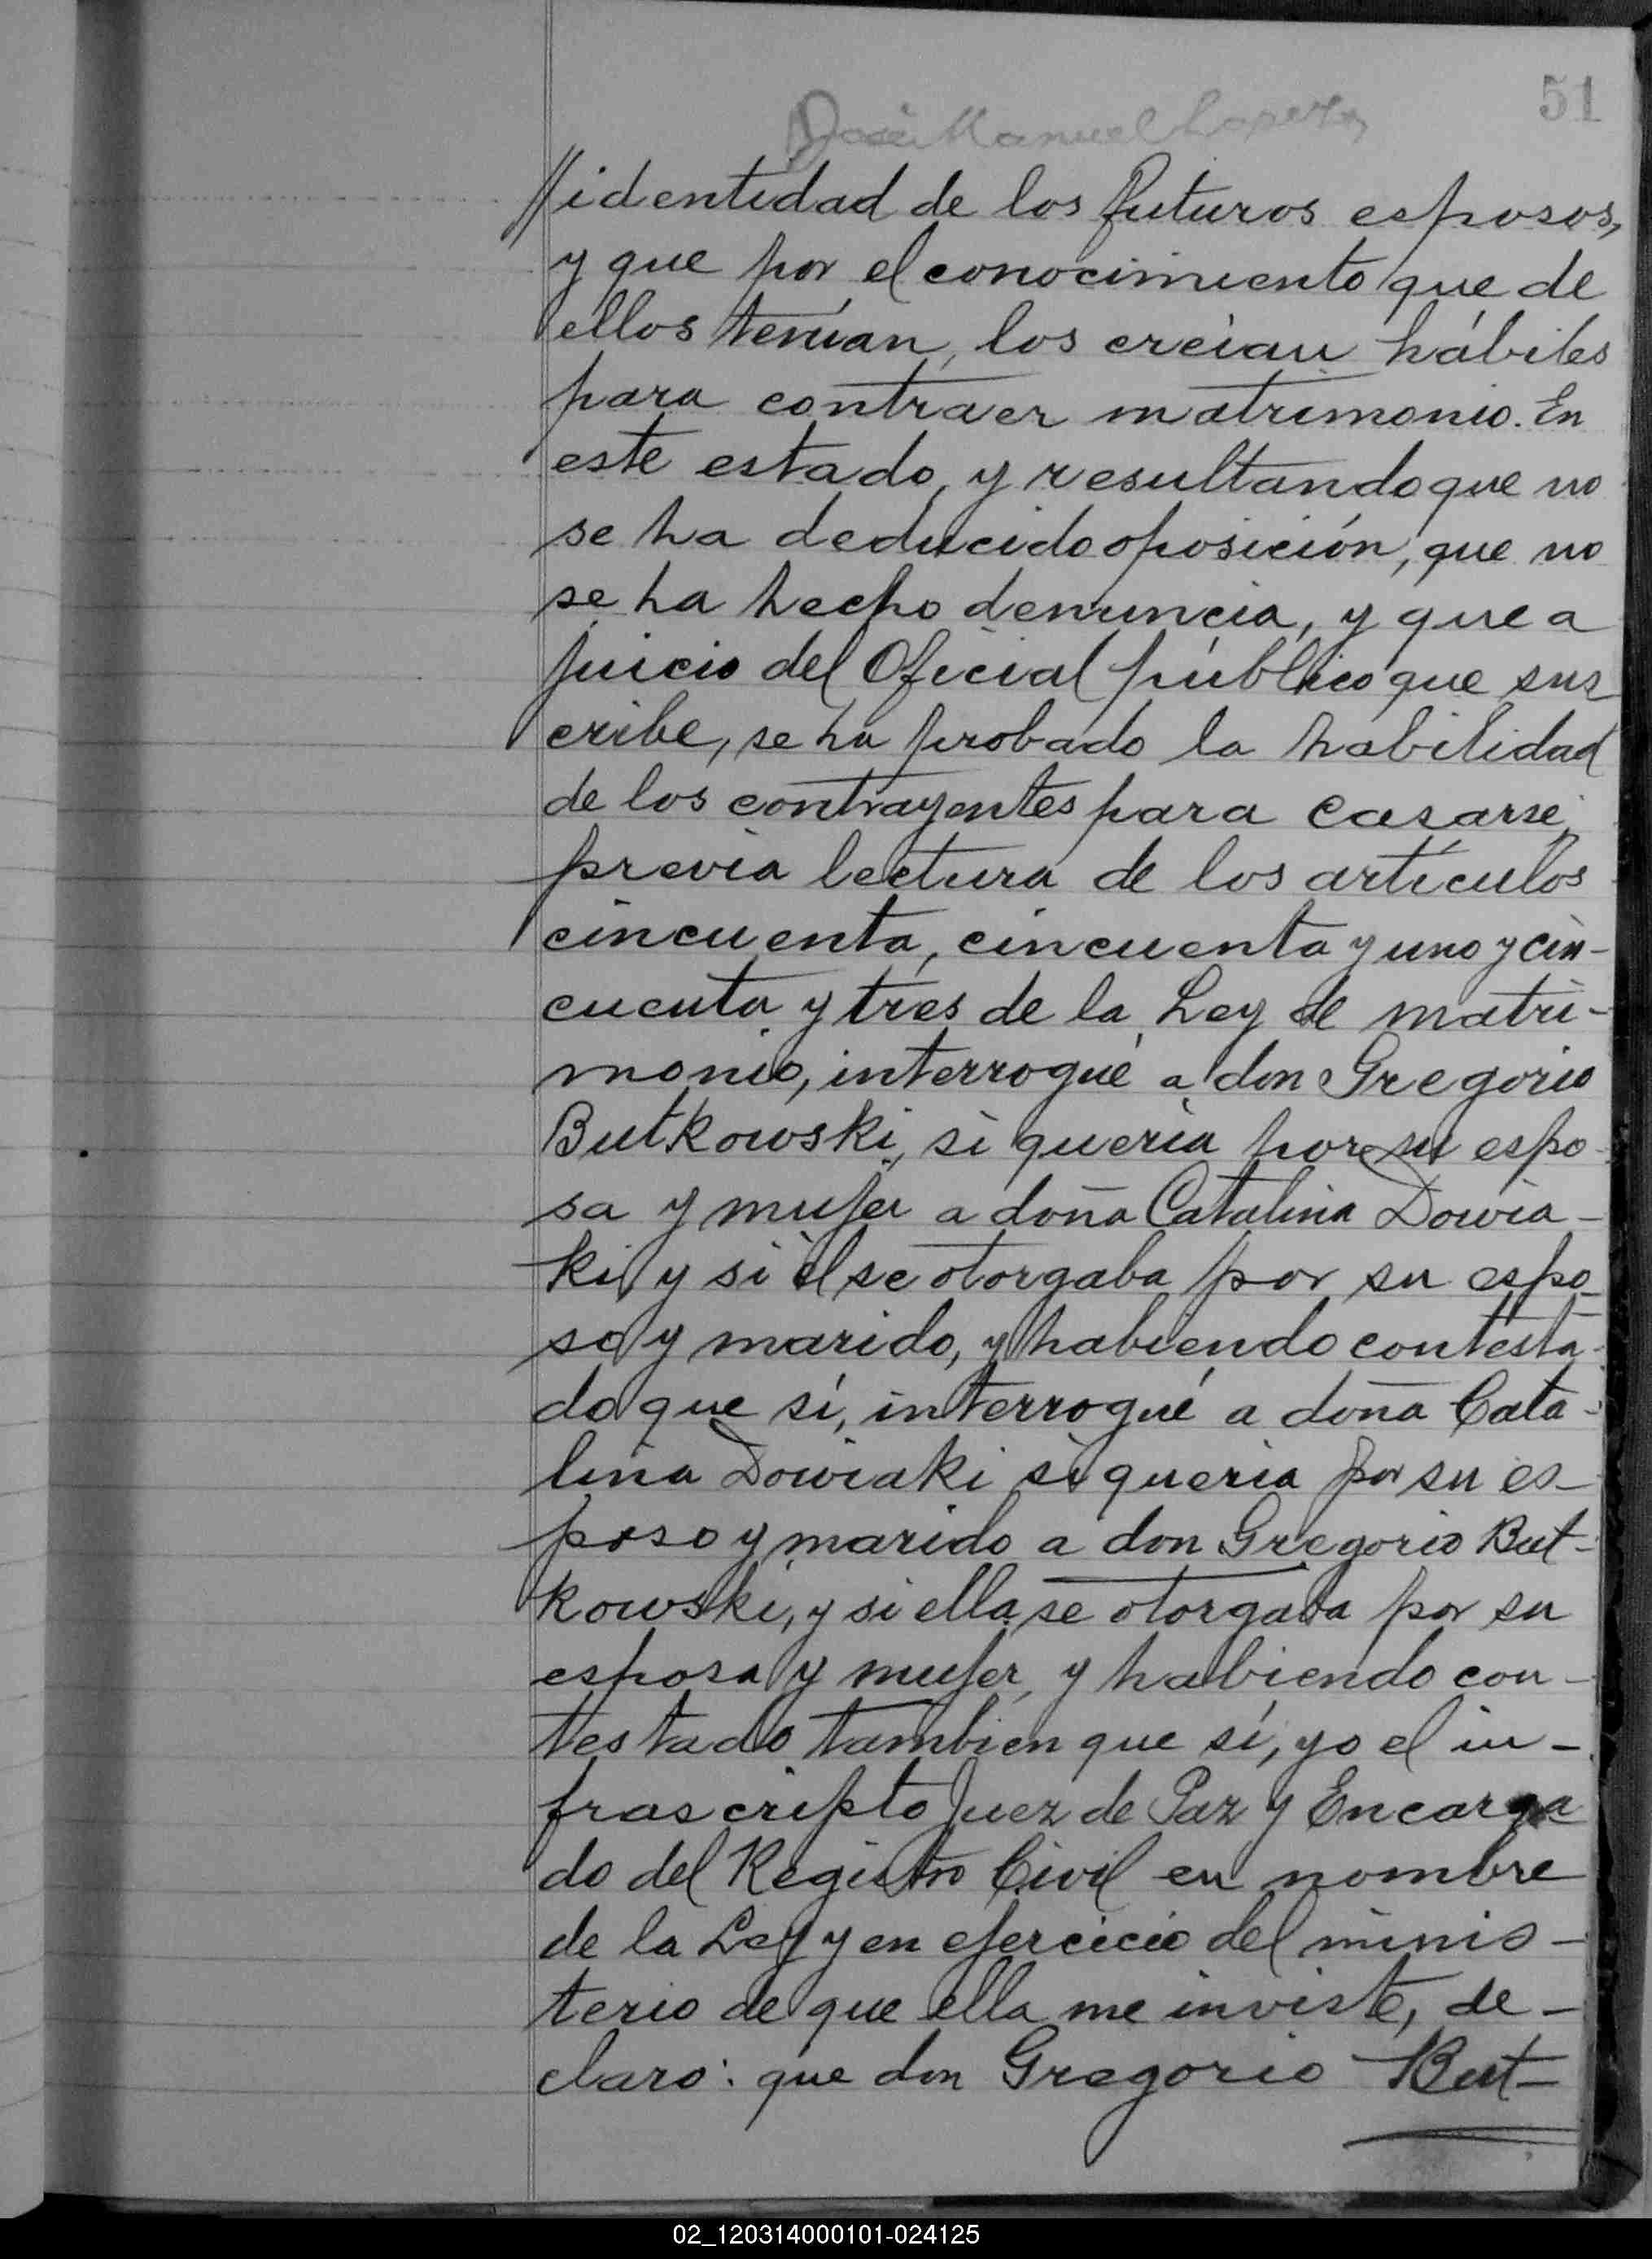 51
José Manuel Lopez
//identidad de los futuros esposos,
y que por el conocimiento que de
ellos tenían, los creían hábiles
para contraer matrimonio. En
este estado, y resultando que no
se ha deducido oposición, que no
se ha hecho denuncia, y que a
juicio del Oficial público que sus
cribe, se ha probado la habilidad
de los contrayentes para casarse,
previa lectura de los artículos
cincuenta, cincuenta y uno y cin-
cuenta y tres de la Ley de matri-
monio, interrogué a don Gregorio
Butkowski, si quería por su espo-
sa y mujer a doña Catalina Dowia-
ki, y si él se otorgaba por su espo-
so y marido, y habiendo contesta-
do que sí, interrogué a doña Cata-
lina Dowiaki si quería por su es-
poso y marido a don Gregorio But-
kowski, y si ella se otorgaba por su
esposa y mujer, y habiendo con-
testado tambien que sí, yo el in-
frascripto Juez de Paz y Encarga
do del Registro Civil en nombre
de la Ley y en ejercicio del minis-
terio de que ella me inviste, de-
claro: que don Gregorio But-
02_120314000101-024125